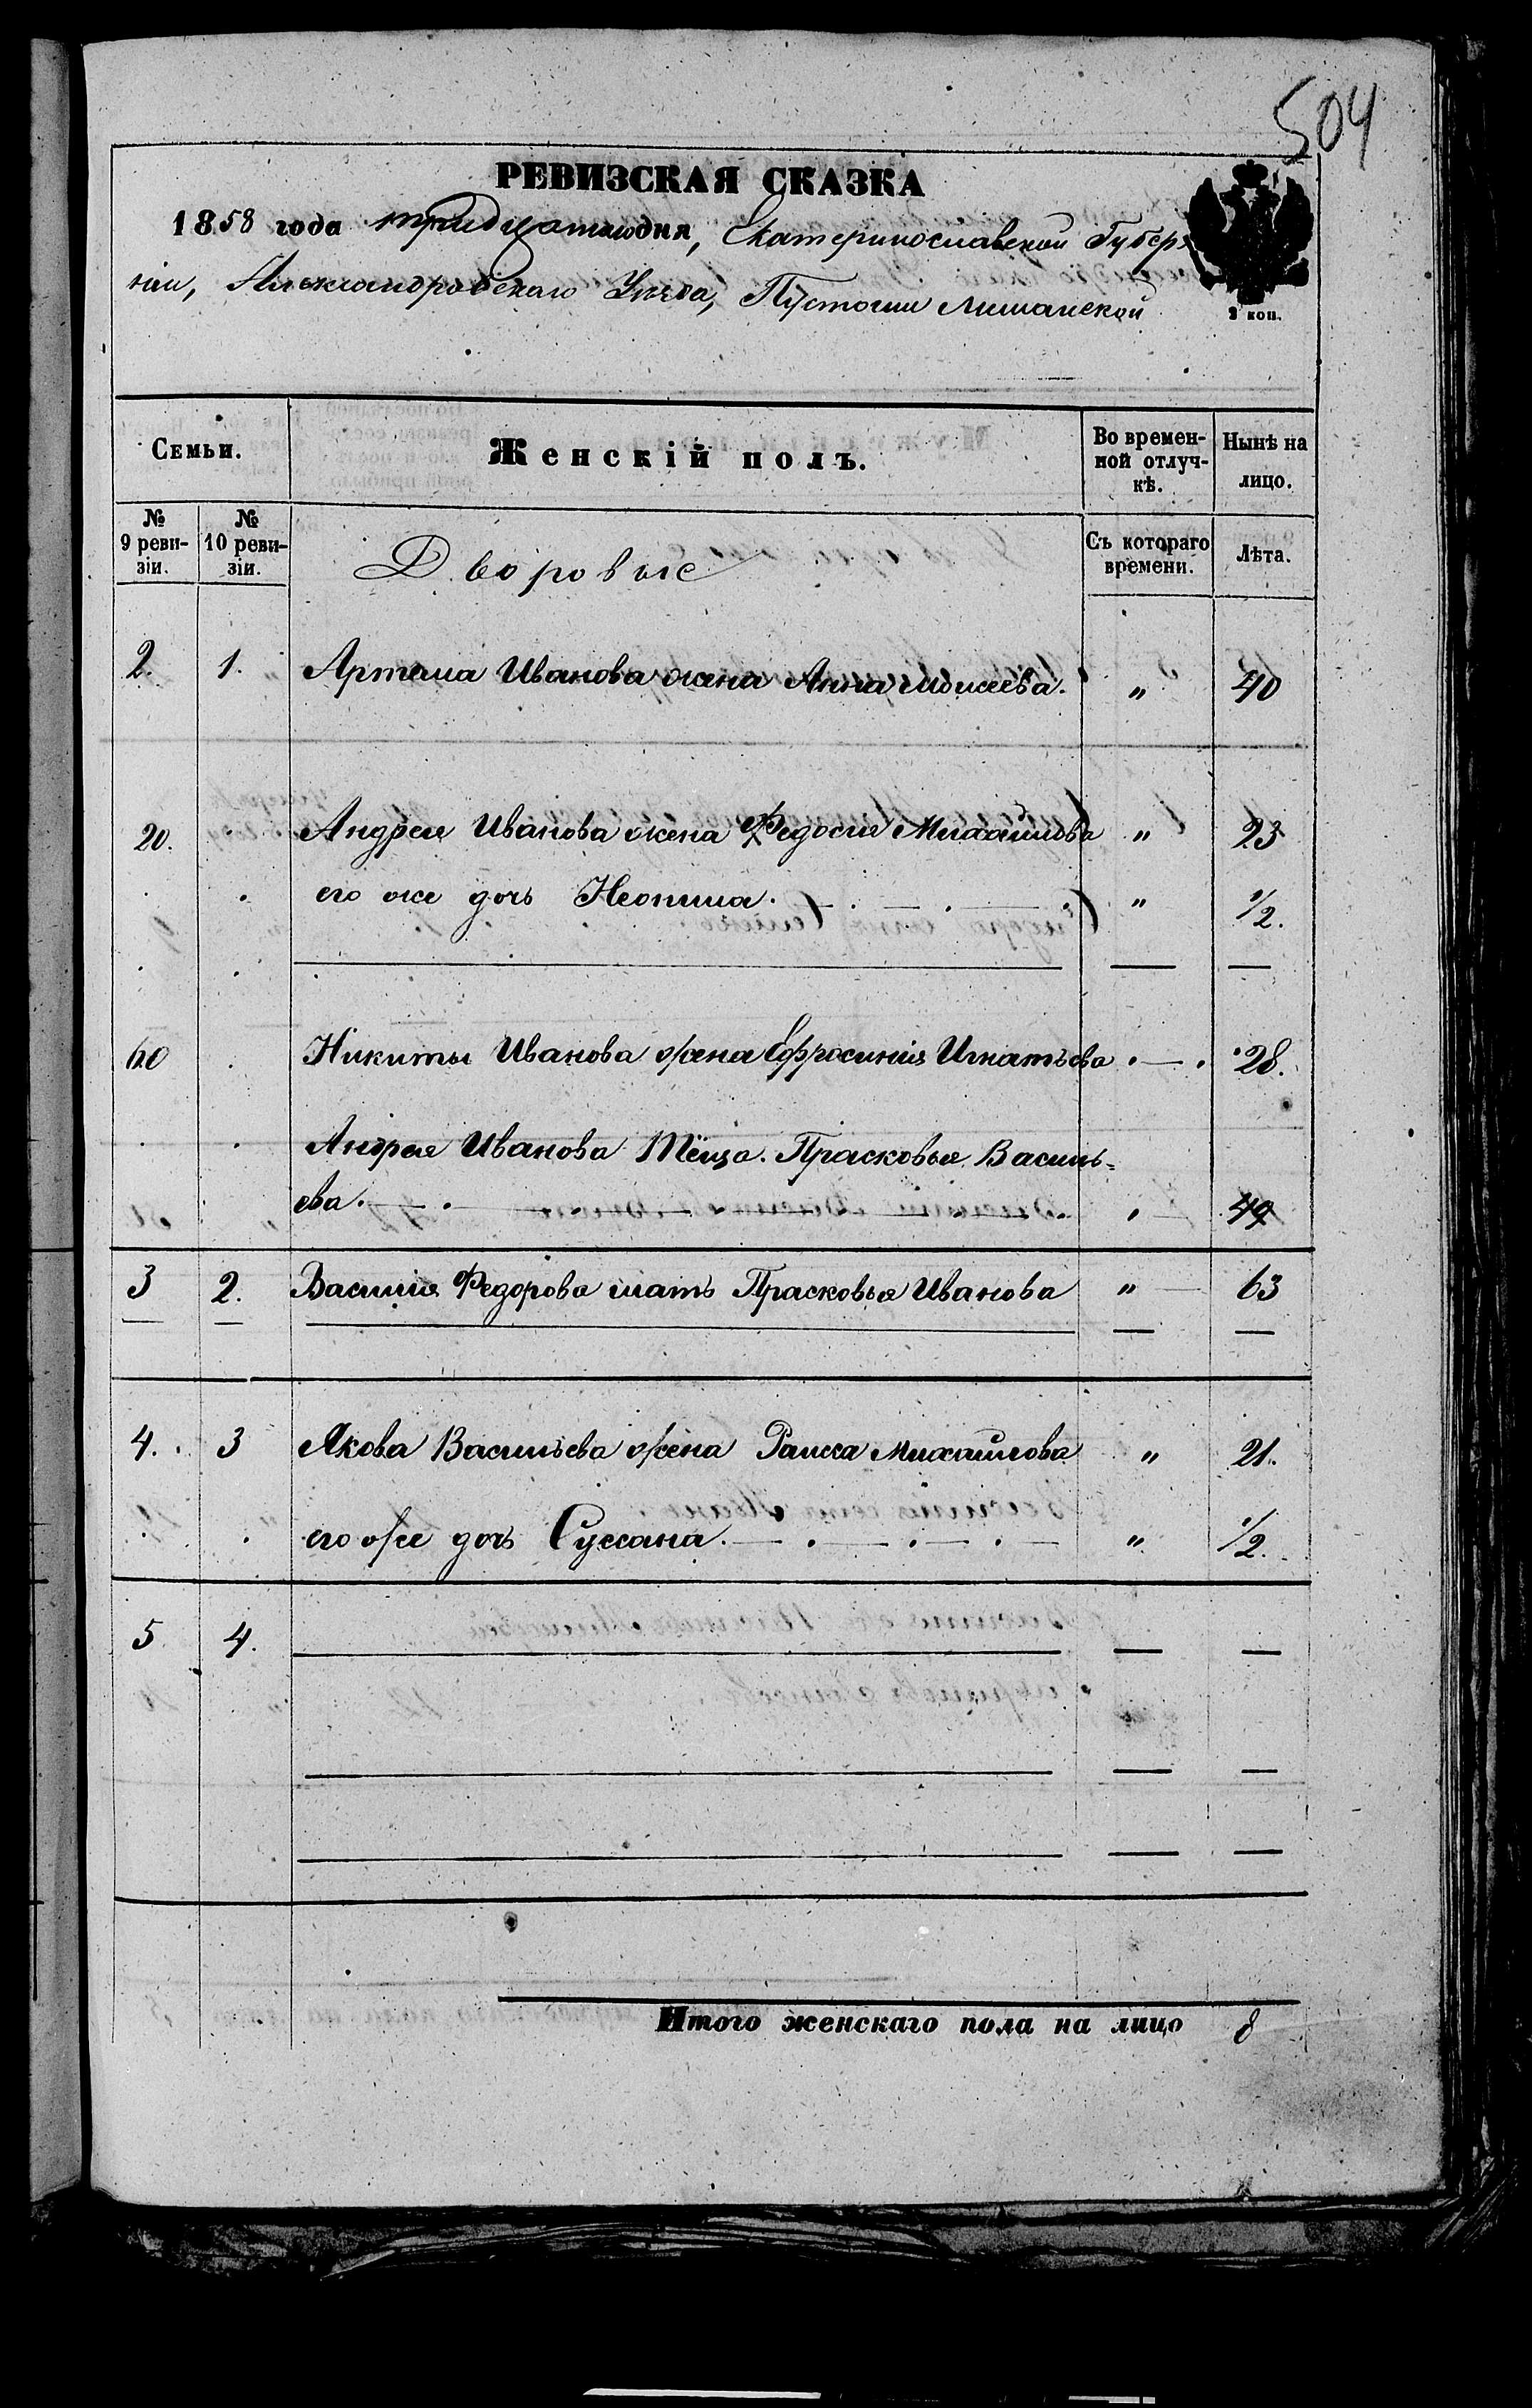 504
РЕВИЗСКАЯ СКАЗКА
1858 года тридцатаго дня, Екатеринославской Губер
ніи, Александровскаго Уѣзда, Пустоши
2 коп.
Семьи.
Женскій полъ.
Во времен-
ной отлуч-
кѣ.
Нынѣ на
лицо.
№
9 реви-
зіи.
№
10 реви-
зіи.
Дворовые
Съ котораго
времени.
Лѣта.
2. 1. Артема Иванова жена Анна Моисеева. „ 40
20. Андрея Иванова жена Федосия Михайлова „ 23
его же дочь Неонила. „ 1/2.
60 Никиты Иванова жена Ефросинія Игнатьева 28.
Андрея Иванова Тёща Прасковья Василь=
ева. 49
3 2. Василия Федорова мать Прасковья Иванова „ 63
4. 3 Якова Васильева жена Раисса Михайлова „ 21.
его же дочь Суссана. „ 1/2.
5 4.
Итого женскаго пола на лицо 8